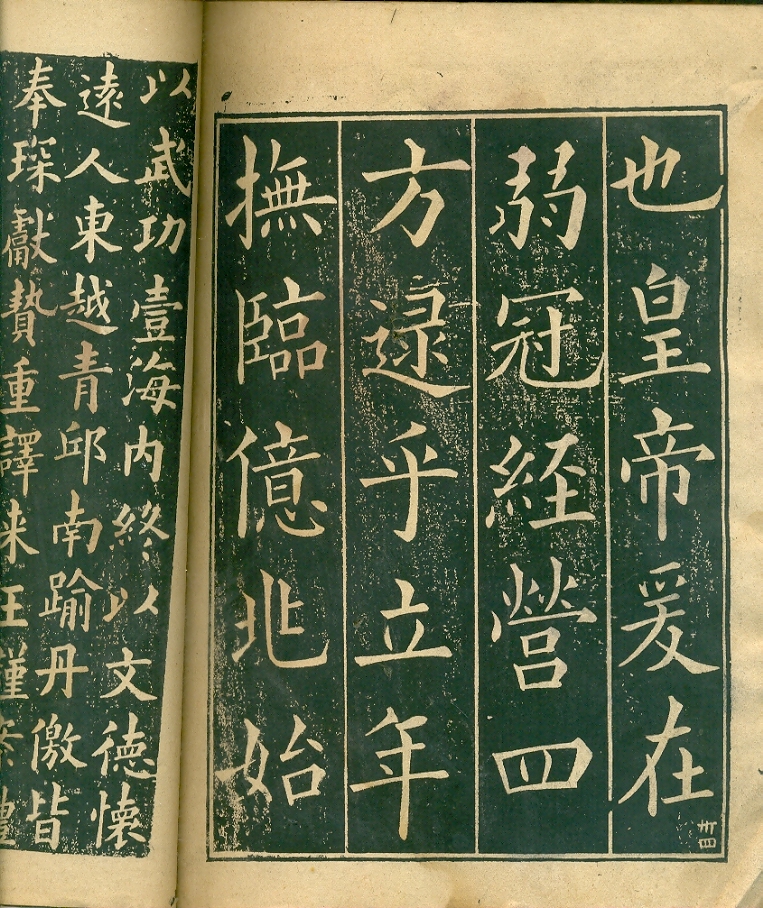 也皇帝爰在
弱冠経營四
方逮乎立年
撫臨億兆始
卅四
以武功壹海内終以文徳懷
遠人東越青邱南踰丹徼皆
奉琛獻贄重譯来王謹案禮